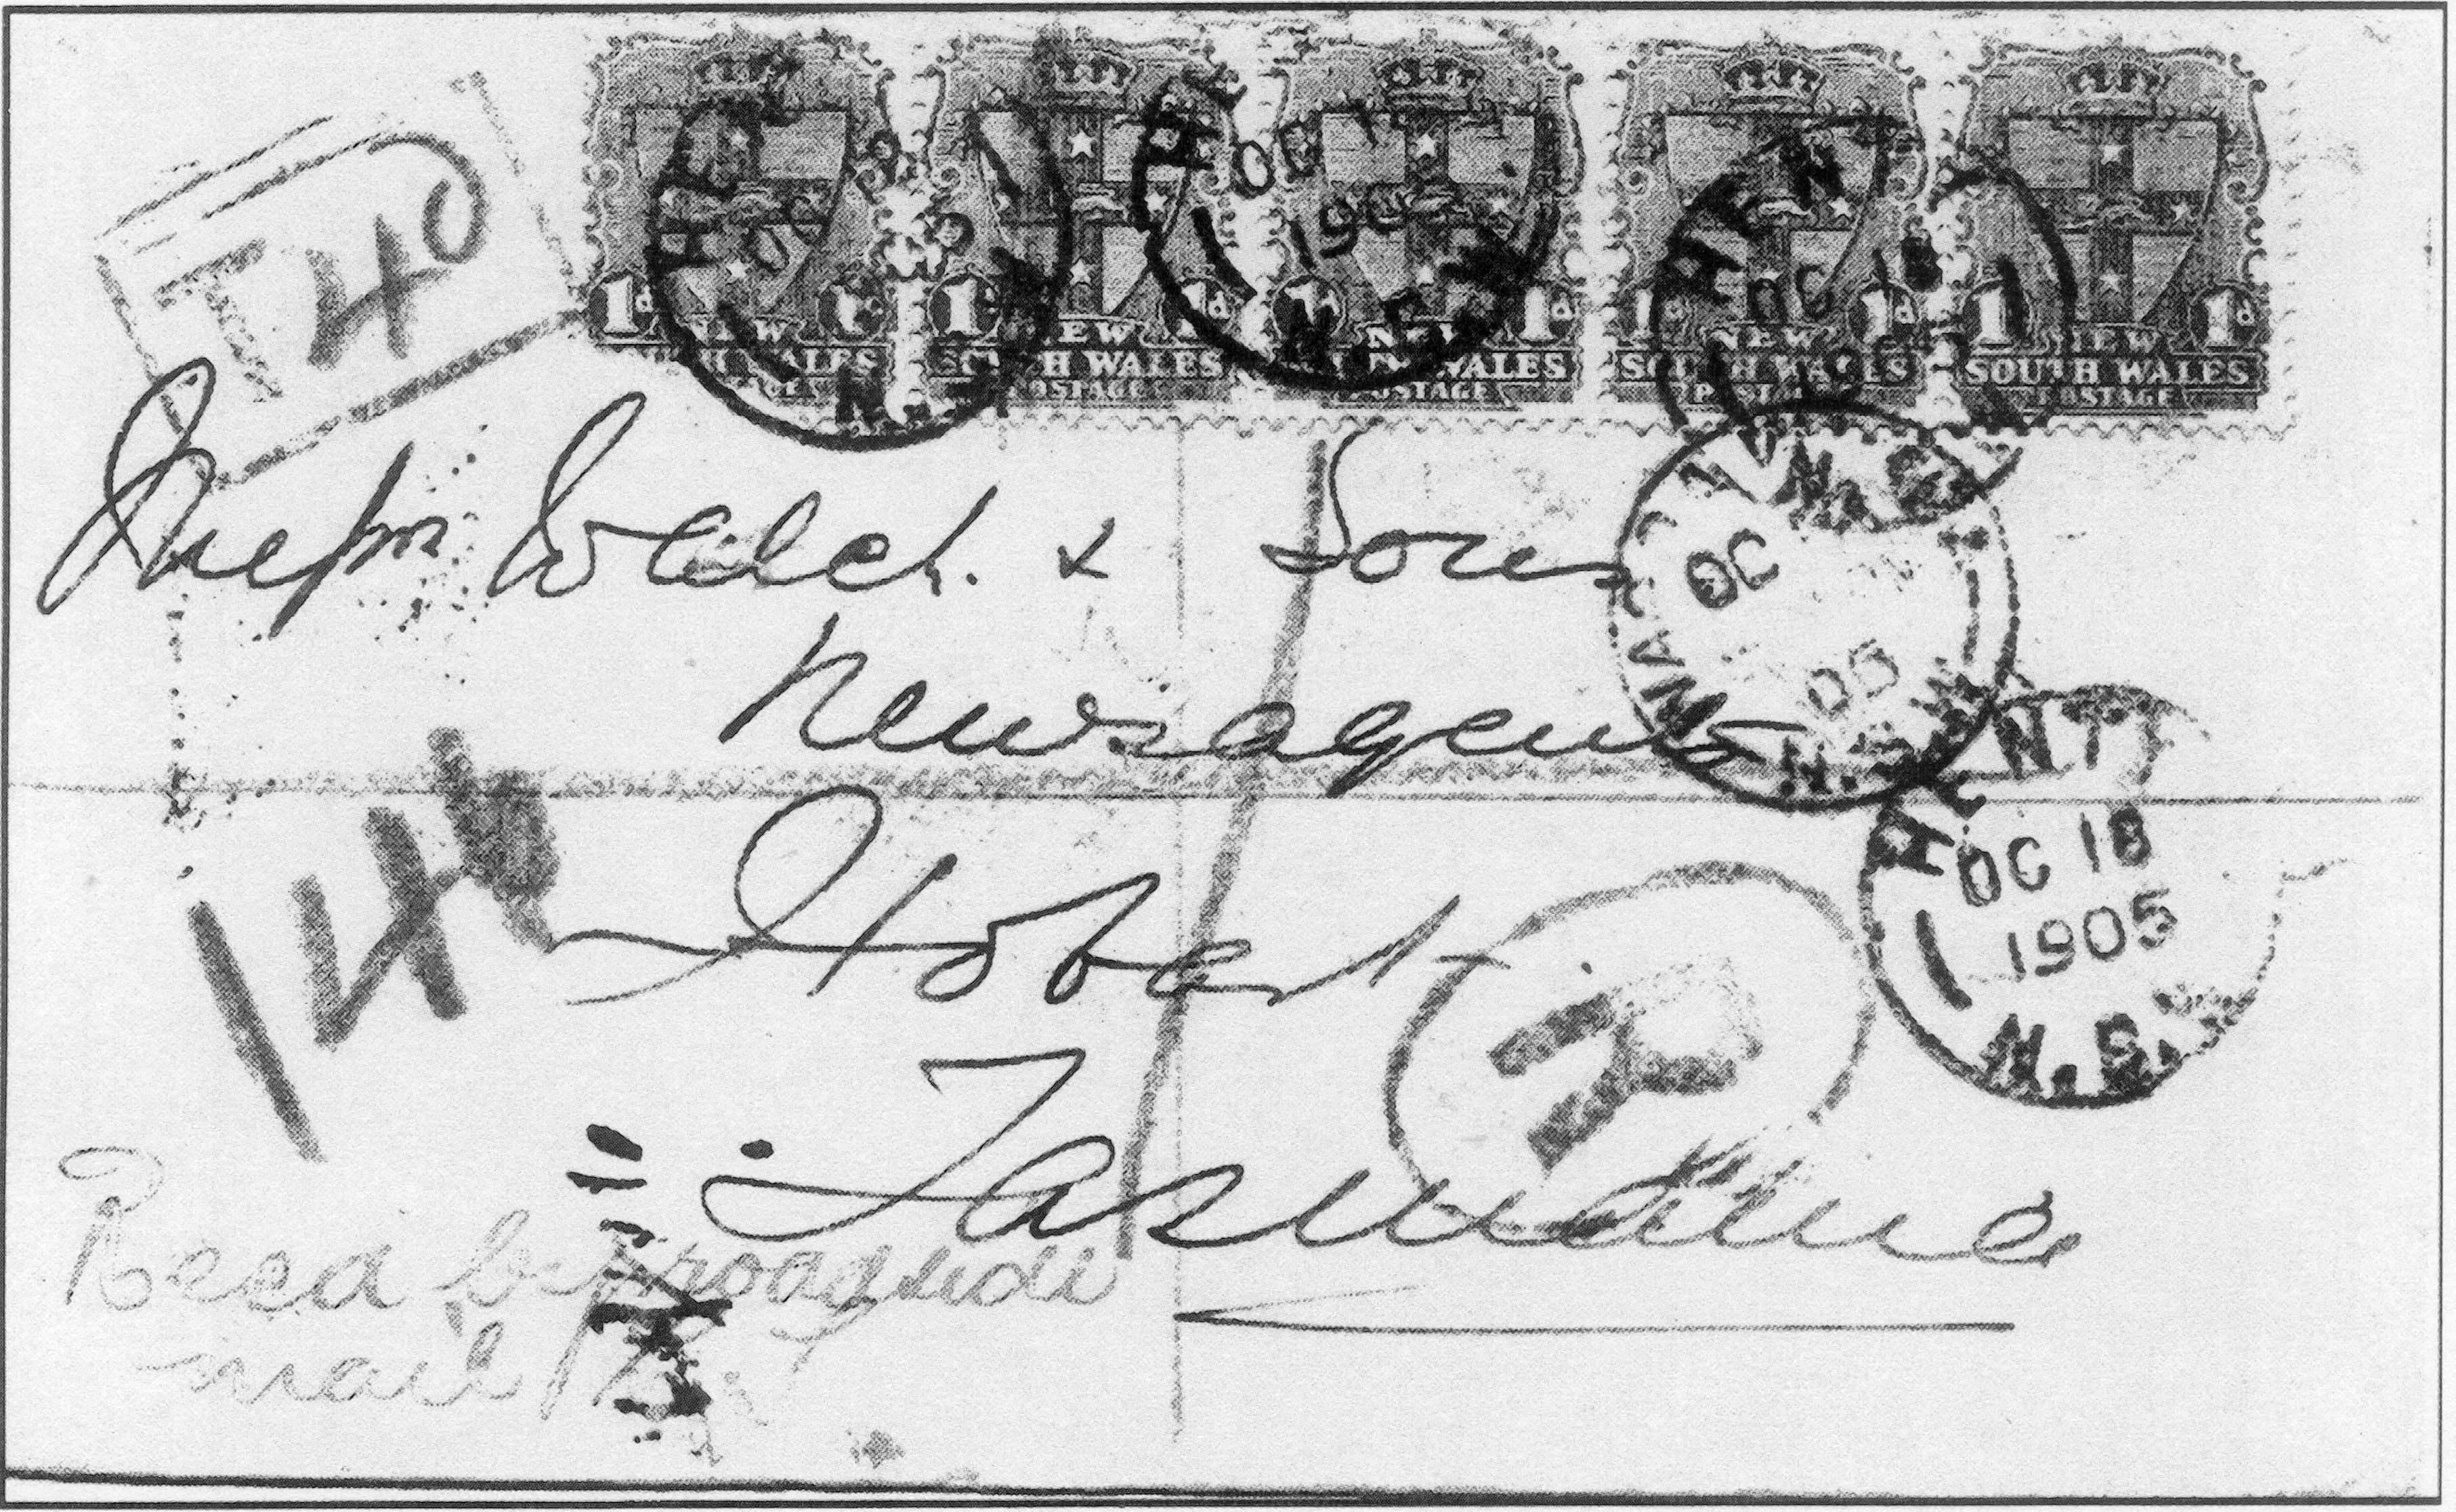 T 40
1d NEW SOUTH WALES POSTAGE
1d 1d NEW SOUTH WALES POSTAGE
1d NEW SOUTH WALES POSTAGE
1d NEW SOUTH WALES POSTAGE
1 1d NEW SOUTH WALES POSTAGE
HENTY
OC
190
Messrs Welch & Sons
Newsagents
Hobart
Tasmania
OC
05
HENTY
OC 18
1905
N.S.W
14
R
Recd by roadside
mail